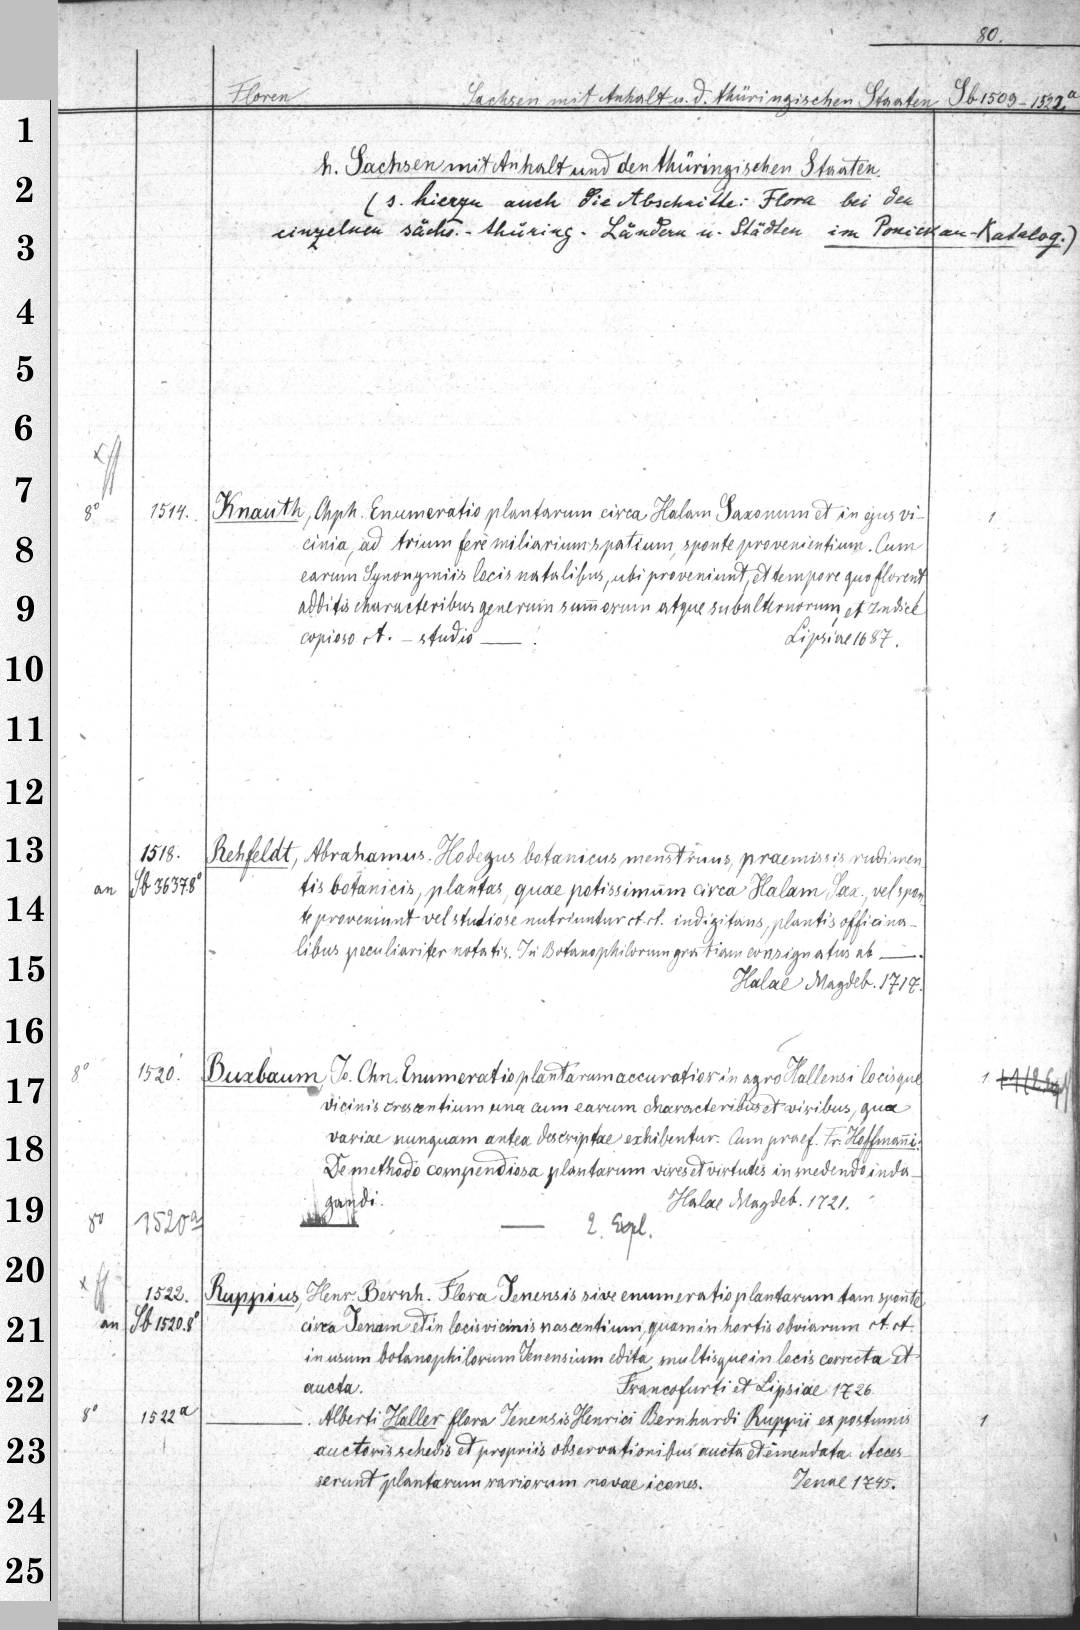 80.
Floren Sachsen mit Anhalt u. d. thüringischen Staaten Sb 1509-1522a
h. Sachsen mit Anhalt und den thüringischen Staaten.
(s. hierzu auch die Abschnitte: Flora bei den
einzelnen sächs.-thüring. Ländern u. Städten im Ponickau-Katalog.)
1
2
3
4
5
6
7
8
9
10
11
12
13
14
15
16
17
18
19
20
21
22
23
24
25
8° 1514. Knauth, Chph. Enumeratio plantarum circa Halam Saxonum et in ejus vi- 1
cinia, ad trium fere miliarium spatium, sponte provenientium. Cum
earum Synonymiis locis natalibus, ubi proveniunt, et tempore quo florent
additis characteribus generum summorum atque subalternorum, et Indice
copioso et. – studio — . Lipsiae 1687.
1518. Rehfeldt, Abrahamus. Hodegus botanicus menstruus, praemissis rudimen
an Sb 3637.8° tis botanicis, plantas, quae potissimum circa Halam Sax., vel spon
te proveniunt vel studiose nutriuntur et. et. indigitans, plantis officina-
libus peculiariter notatis. In Botanophilorum gratiam consignatus ab —.
Halae Magdeb. 1717.
8° 1520. Buxbaum, Jo. Chn. Enumeratio plantarum accuratior in agro Hallensi locisque 1
vicinis crescentium una cum earum characteribus et viribus, qua
variae nunquam antea descriptae exhibentur. Cum praef. Fr. Hoffmanni:
De methodo compendiosa plantarum vires et virtutes in medendo inda-
gandi. Halae Magdeb. 1721.
8° 1520a — — 2. Expl.
1522. Ruppius, Henr. Bernh. Flora Jenensis sive enumeratio plantarum tam sponte
an Sb 1520.8° circa Jenam et in locis vicinis nascentium, quam in hortis obviarum et. et.
in usum botanophilorum Jenensium edita multisque in locis correcta et
aucta. Francofurti et Lipsiae 1726
8° 1522a — . Alberti Haller flora Jenensis Henrici Bernhardi Ruppii ex postumis 1
auctoris schedis et propriis observationibus aucta et emendata. Acces-
serunt plantarum rariorum novae icones. Jenae 1745.